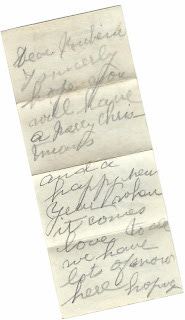 Dear
I sincerely
hope you
will have
a Merry Chris
and a
happy new
Year when
it comes
love to
we have
lots of snow
here hope